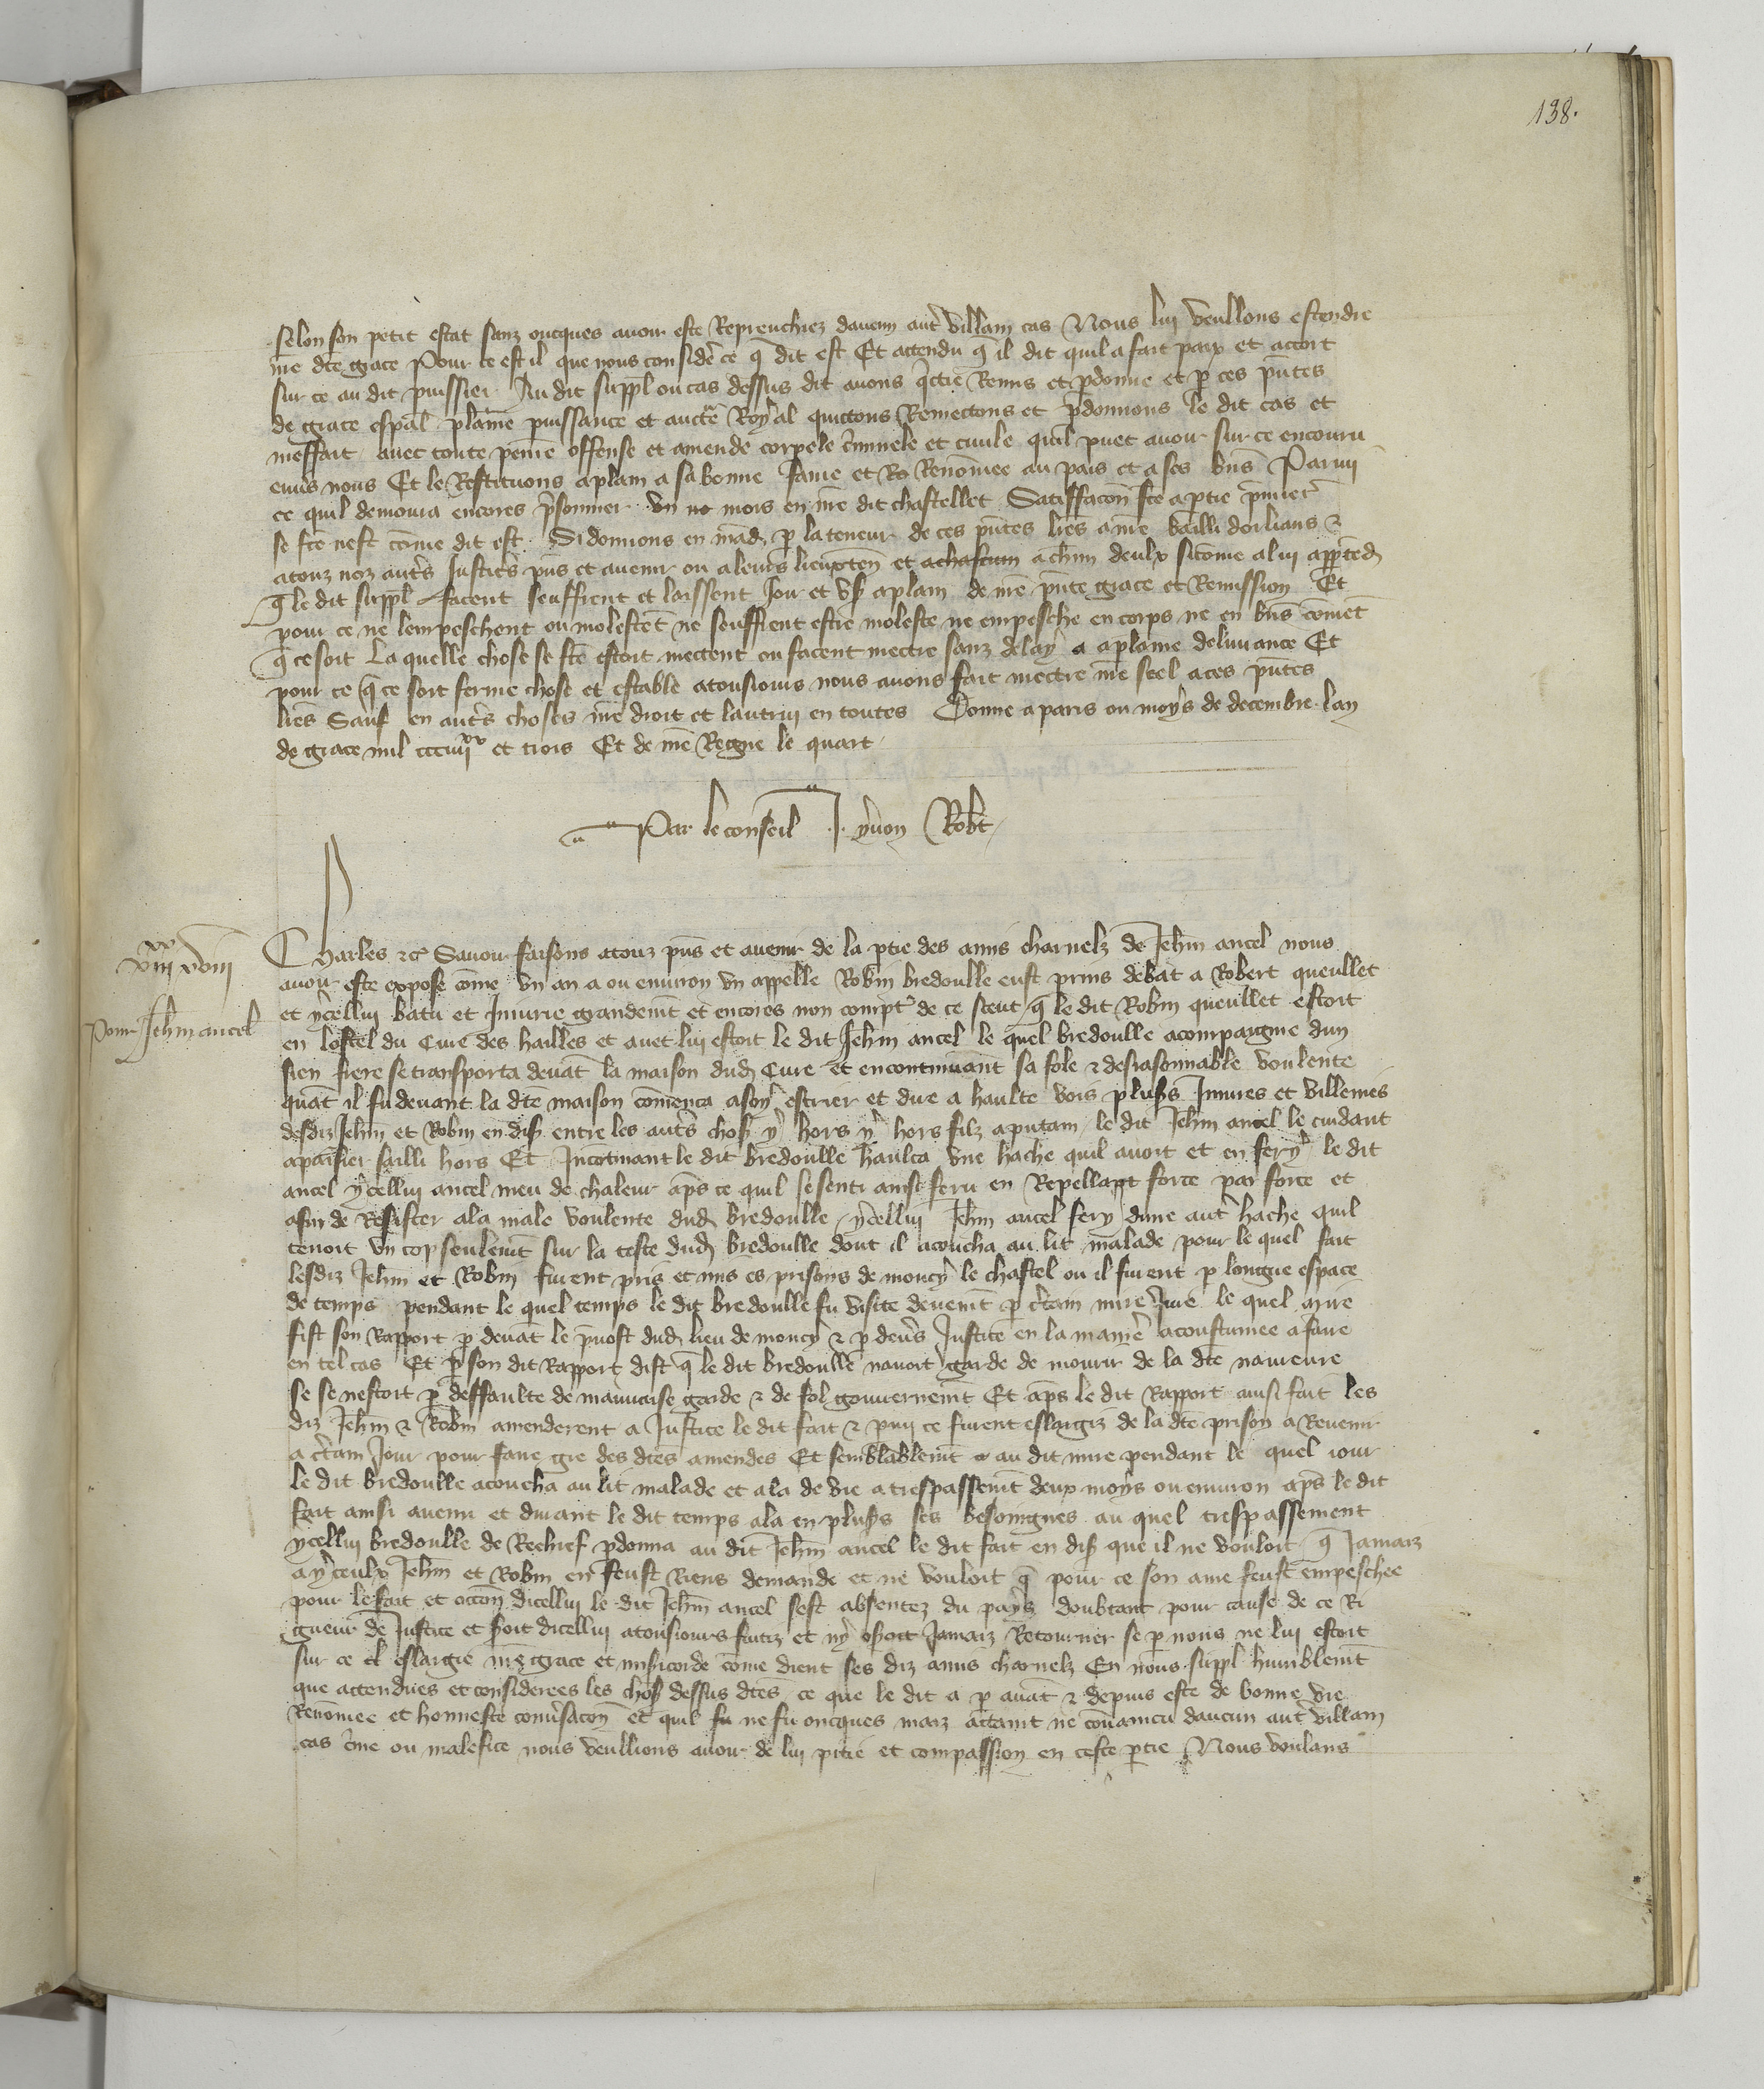 138.
selon son petit estat sanz oncques avoir este Reprenchiez daucun autr villain cas Nous lui veullons estendre
nre dte grace Pour ce est il que nous considere ce q dit est Et actendu q il dit quil a fait paix et accort
sur ce au dit puissier Au dit suppl ou cas dessus dit avons quictie Remis et pdonne et p ces pntes
de grace espal plaine puissance et aucte Royal quictons Remectons et pdonnons le dit cas et
meffait avec toute peine offense et amende corpele criminele et civile quil puet avoir sur ce encouru
envs nous Et le Restituons a plain a sa bonne fame et Ro Renommee au pais et a ses bns Parmi
ce quil demoura encores prisonnier un no mois en nre dit chastellet Satiffacon fte a ptie premier
se fte nest come dit est Si donnons en mad p la teneur de ces pntes lres a nre bailli dorlians et
a touz noz autrs Justiciers pns et avenir ou a leurs lieuxten et a chascun a chun deulx sicome a lui appted
q le dit suppl facent seuffrent et laissent Joir et usr a plain de nre pnte grace et Remission Et
pour ce ne lempeschent ou molestent ne seuffrent estre moleste ne empesche en corps ne en bns coment
q ce soit La quelle chose se fte estoit mectent ou facent mectre sanz delay a a plaine delivrance Et
pour ce q ce soit ferme chose et estable a tousiours nous avons fait mectre nre seel a ces pntes
lres Sauf en autrs choses nre droit et lautrui en toutes Donne a paris ou moys de decembre lan
de grace mil ccciiiixx et trois Et de nre Regne le quart
Par le conseil J. yvon Robt
viixx xviii
Pour Jehn ancel
Charles etc Savoir faisons a touz pns et avenir de la ptie des amis charnelz de Jehn ancel nous
avoir este expose come un an a ou environ un appelle Robin bredoulle eust prins debat a Robert queullet
et ycellui batu et Injurie grandemt et encores non compt de ce sceut q le dit Robin queullet estoit
en lostel du Cure des hailles et avec lui estoit le dit Jehn ancel le quel bredoulle acompaigne dun
sien frere se transporta devat la maison dud Cure et en continuant sa fole et desrasonnable voulente
quat il fu devant la dte maison comenca a soy escrier et dire a haulte vois plusrs Injures et villenies
desdiz Jehn et Robin en dist entre les autrs chos yr hors yr hors filz a putain le dit Jehn ancel le cuidant
apaisier sailli hors Et Incotinant le dit bredoulle haulca une hache quil avoit et en fery le dit
ancel ycellui ancel meu de chaleur aps ce quil se senti ainsi feru en Repellant force par force et
afin de Resister a la male voulente dud bredoulle ycellui Jehn ancel fery dune autr hache quil
tenoit un cop seulemt sur la teste dud bredoulle dont il acoucha au lit malade pour le quel fait
lesdiz Jehn et Robin furent pris et mis es prisons de moucy le chastel ou il furent p longue espace
de temps pendant le quel temps le dit bredoulle fu visite deuemt p certain mire Jure le quel mire
fist son Rapport p devat le prevost dud lieu de moucy et p devs Justice en la manier acoustumee a faire
en tel cas Et p son dit Rapport dist q le dit bredoulle navoit garde de mourir de la dte navreure
se se nestoit p deffaulte de mauvaise garde et de fol gouvernemt Et aps le dit Rapport ainsi fait les
diz Jehn et Robin amenderent a Justice le dit fait et pmi ce furent eslargiz de la dte prison a Revenir
a certain Jour pour faire gre des dtes amendes Et semblablemt au dit mire pendant le quel iour
le dit bredoulle acoucha au lit malade et ala de vie a trespassemt deux moys ou environ aps le dit
fait ainsi avenu et durant le dit temps ala en plusrs ses besoingnes au quel trespassement
ycellui bredoulle de Rechief pdonna au dit Jehn ancel le dit fait en dist que il ne vouloit q Jamaiz
a yceulx Jehn et Robin en feust Riens demande et ne vouloit q pour ce son ame feust empeschee
pour le fait et occon dicellui le dit Jehn ancel sest absentez du pays doubtant pour cause de ce Ri
gueur de Justice et seroit dicellui a tousiours fuitiz et ny oseroit Jamaiz Retourner se p nous ne lui estoit
sur ce el eslargie nre grace et misricorde come dient ses diz amis charnelz En nous suppl humblemt
que actendues et considerees les chos dessus dtes ce que le dit a p avat et depuis este de bonne vie
Renommee et honneste conversacon et quil fu ne fu oncques maiz actaint ne convaincu daucun autr villain
cas crime ou malefice nous veullions avoir de lui pitie et compassion en ceste ptie Nous voulans